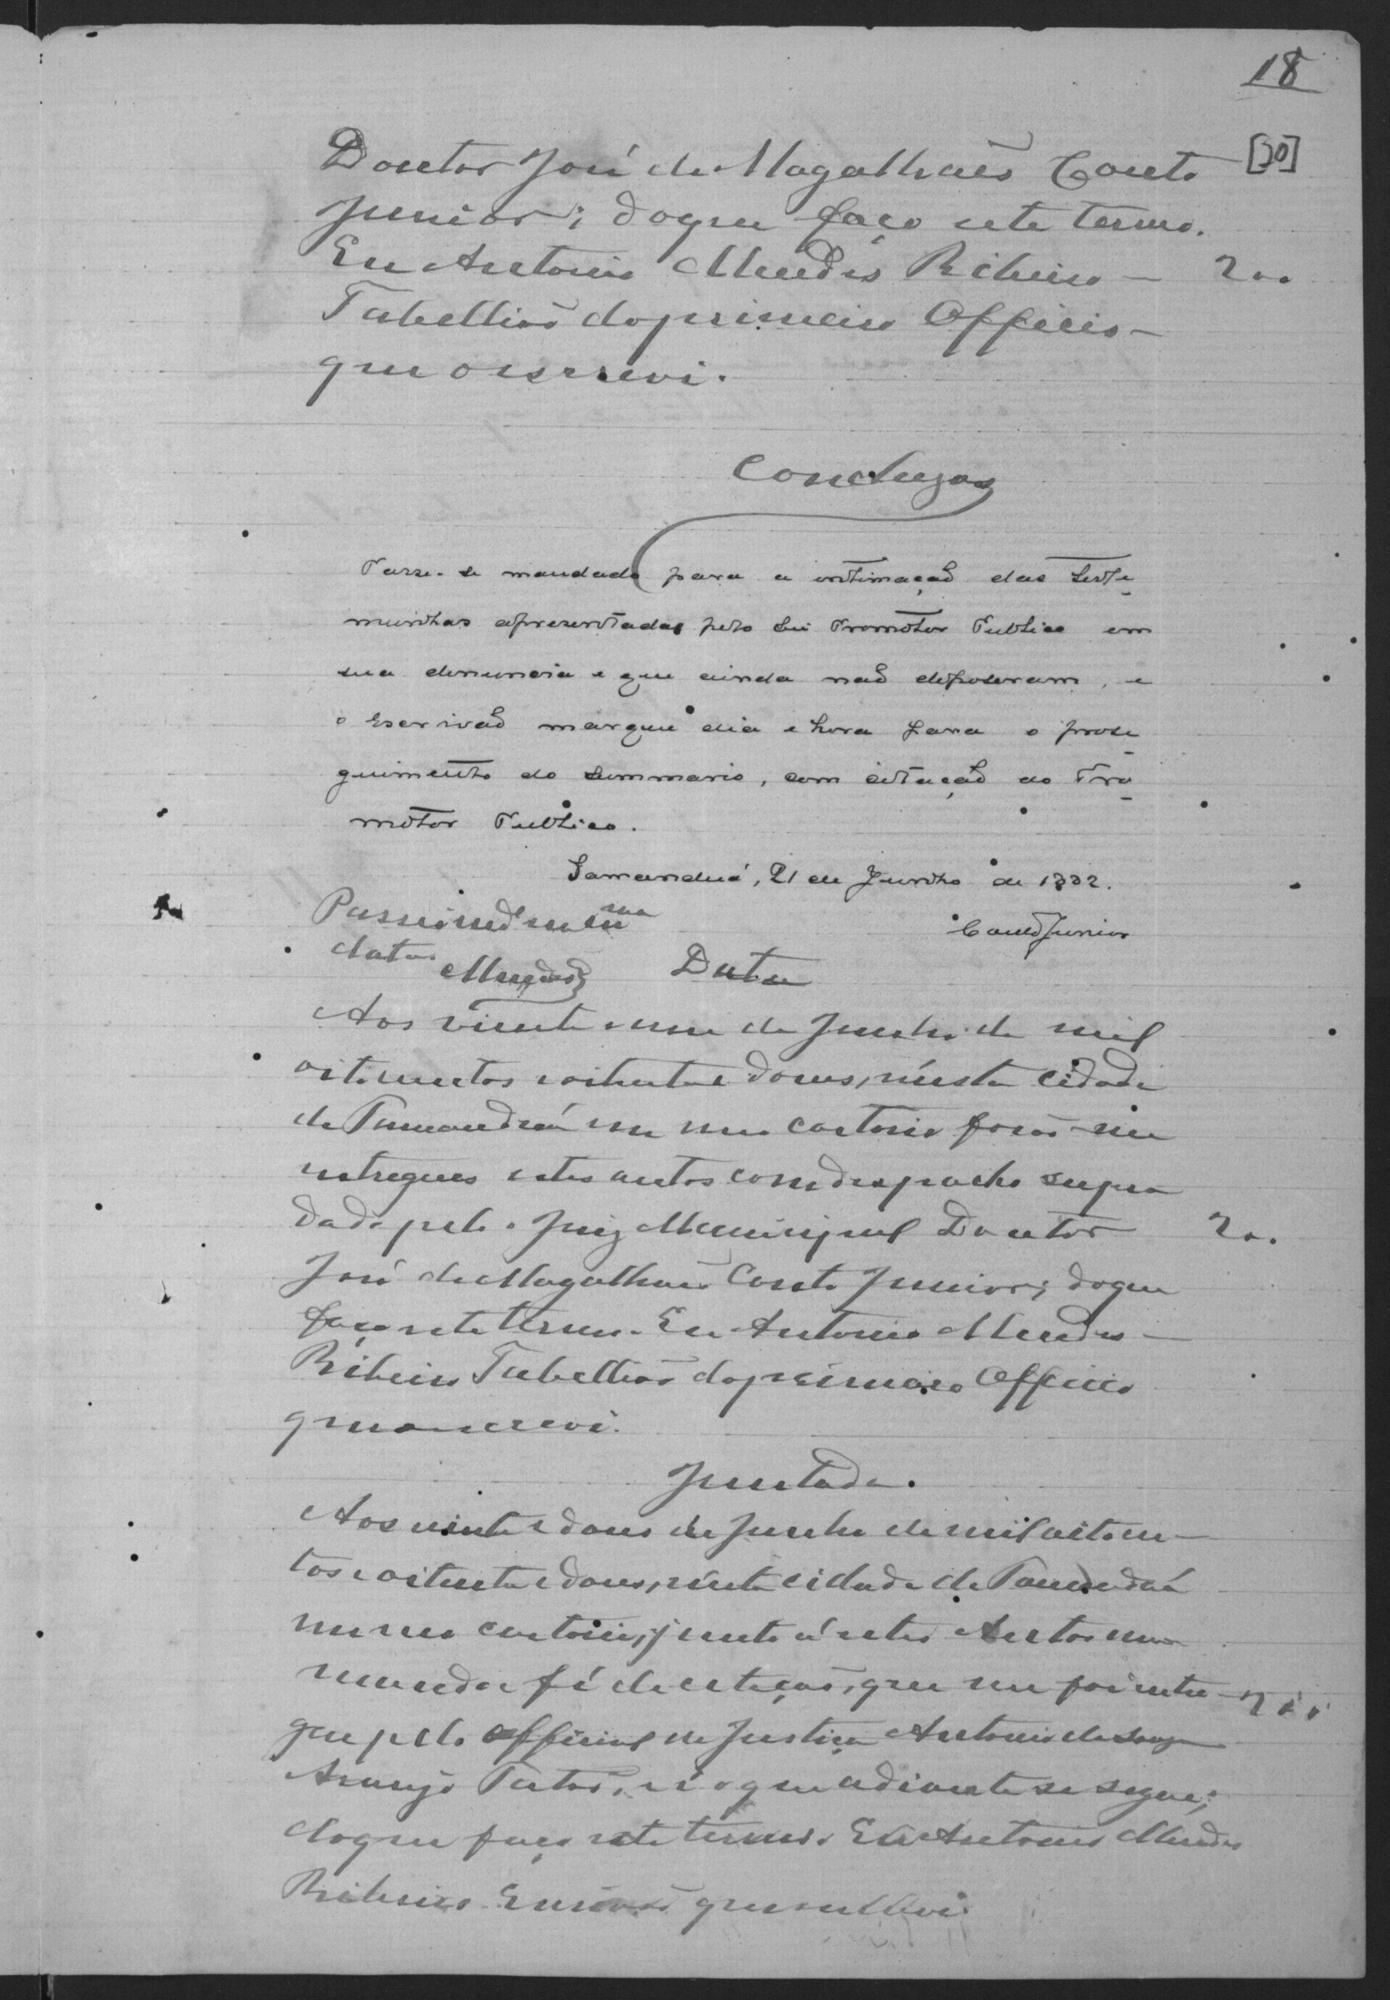 18
[30]
Doutor José de Magalhães Couto
Junior; do que faço este termo.
Eu Antonio Mendes Ribeiro — 200
Tabellião do primeiro Officio —
que o escrevi.
Concluzos
Passe-se mandado para a intimação das teste-
munhas apresentadas pelo Sr. Promotor Publico em
sua denuncia e que ainda não deposeram, e
o Escrivão marque dia e hora para o prose-
guimento do summario, com citação do Pro-
motor Publico.
Tamanduá, 21 de Junho de 1882.
Couto Junior
Passei mdo na mma
data. Mendes
Data
Aos vinte e um de Junho de mil
oitocentos e oitenta e dous, n'esta cidade
de Tamanduá em meu cartorio forão-me
entregues estes autos com despacho supra
dado pelo Juiz Municipal Doutor 200
José de Magalhães Couto Junior; do que
faço este termo. Eu Antonio Mendes —
Ribeiro Tabellião do primeiro Officio
que o escrevi.
Juntada.
Aos vinte e dous de Junho de mil oitocen-
tos e oitenta e dous, n'esta cidade de Tamanduá
em meu cartorio, junto á estes Autos um
mandado fé de citação, que me foi entre- 200
gue pelo Official de Justiça Antonio de Souza
Araujo, é o que adiante se segue;
do que faço este termo. Eu Antonio Mendes
Ribeiro Escrivão que o escrevi.